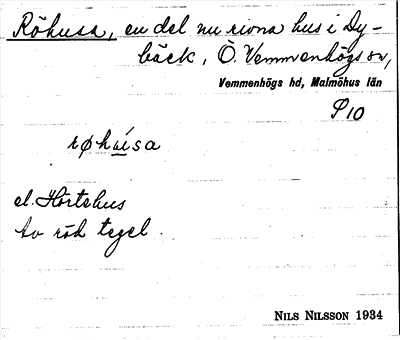 Röhusa, en del nu rivna hus i Dy-
bäck, Ö. Vemmenhögs sn,
Vemmenhögs hd, Malmöhus län
P10
røhúsa
el. Hörtshus
av röd tegel.
NILS NILSSON 1934